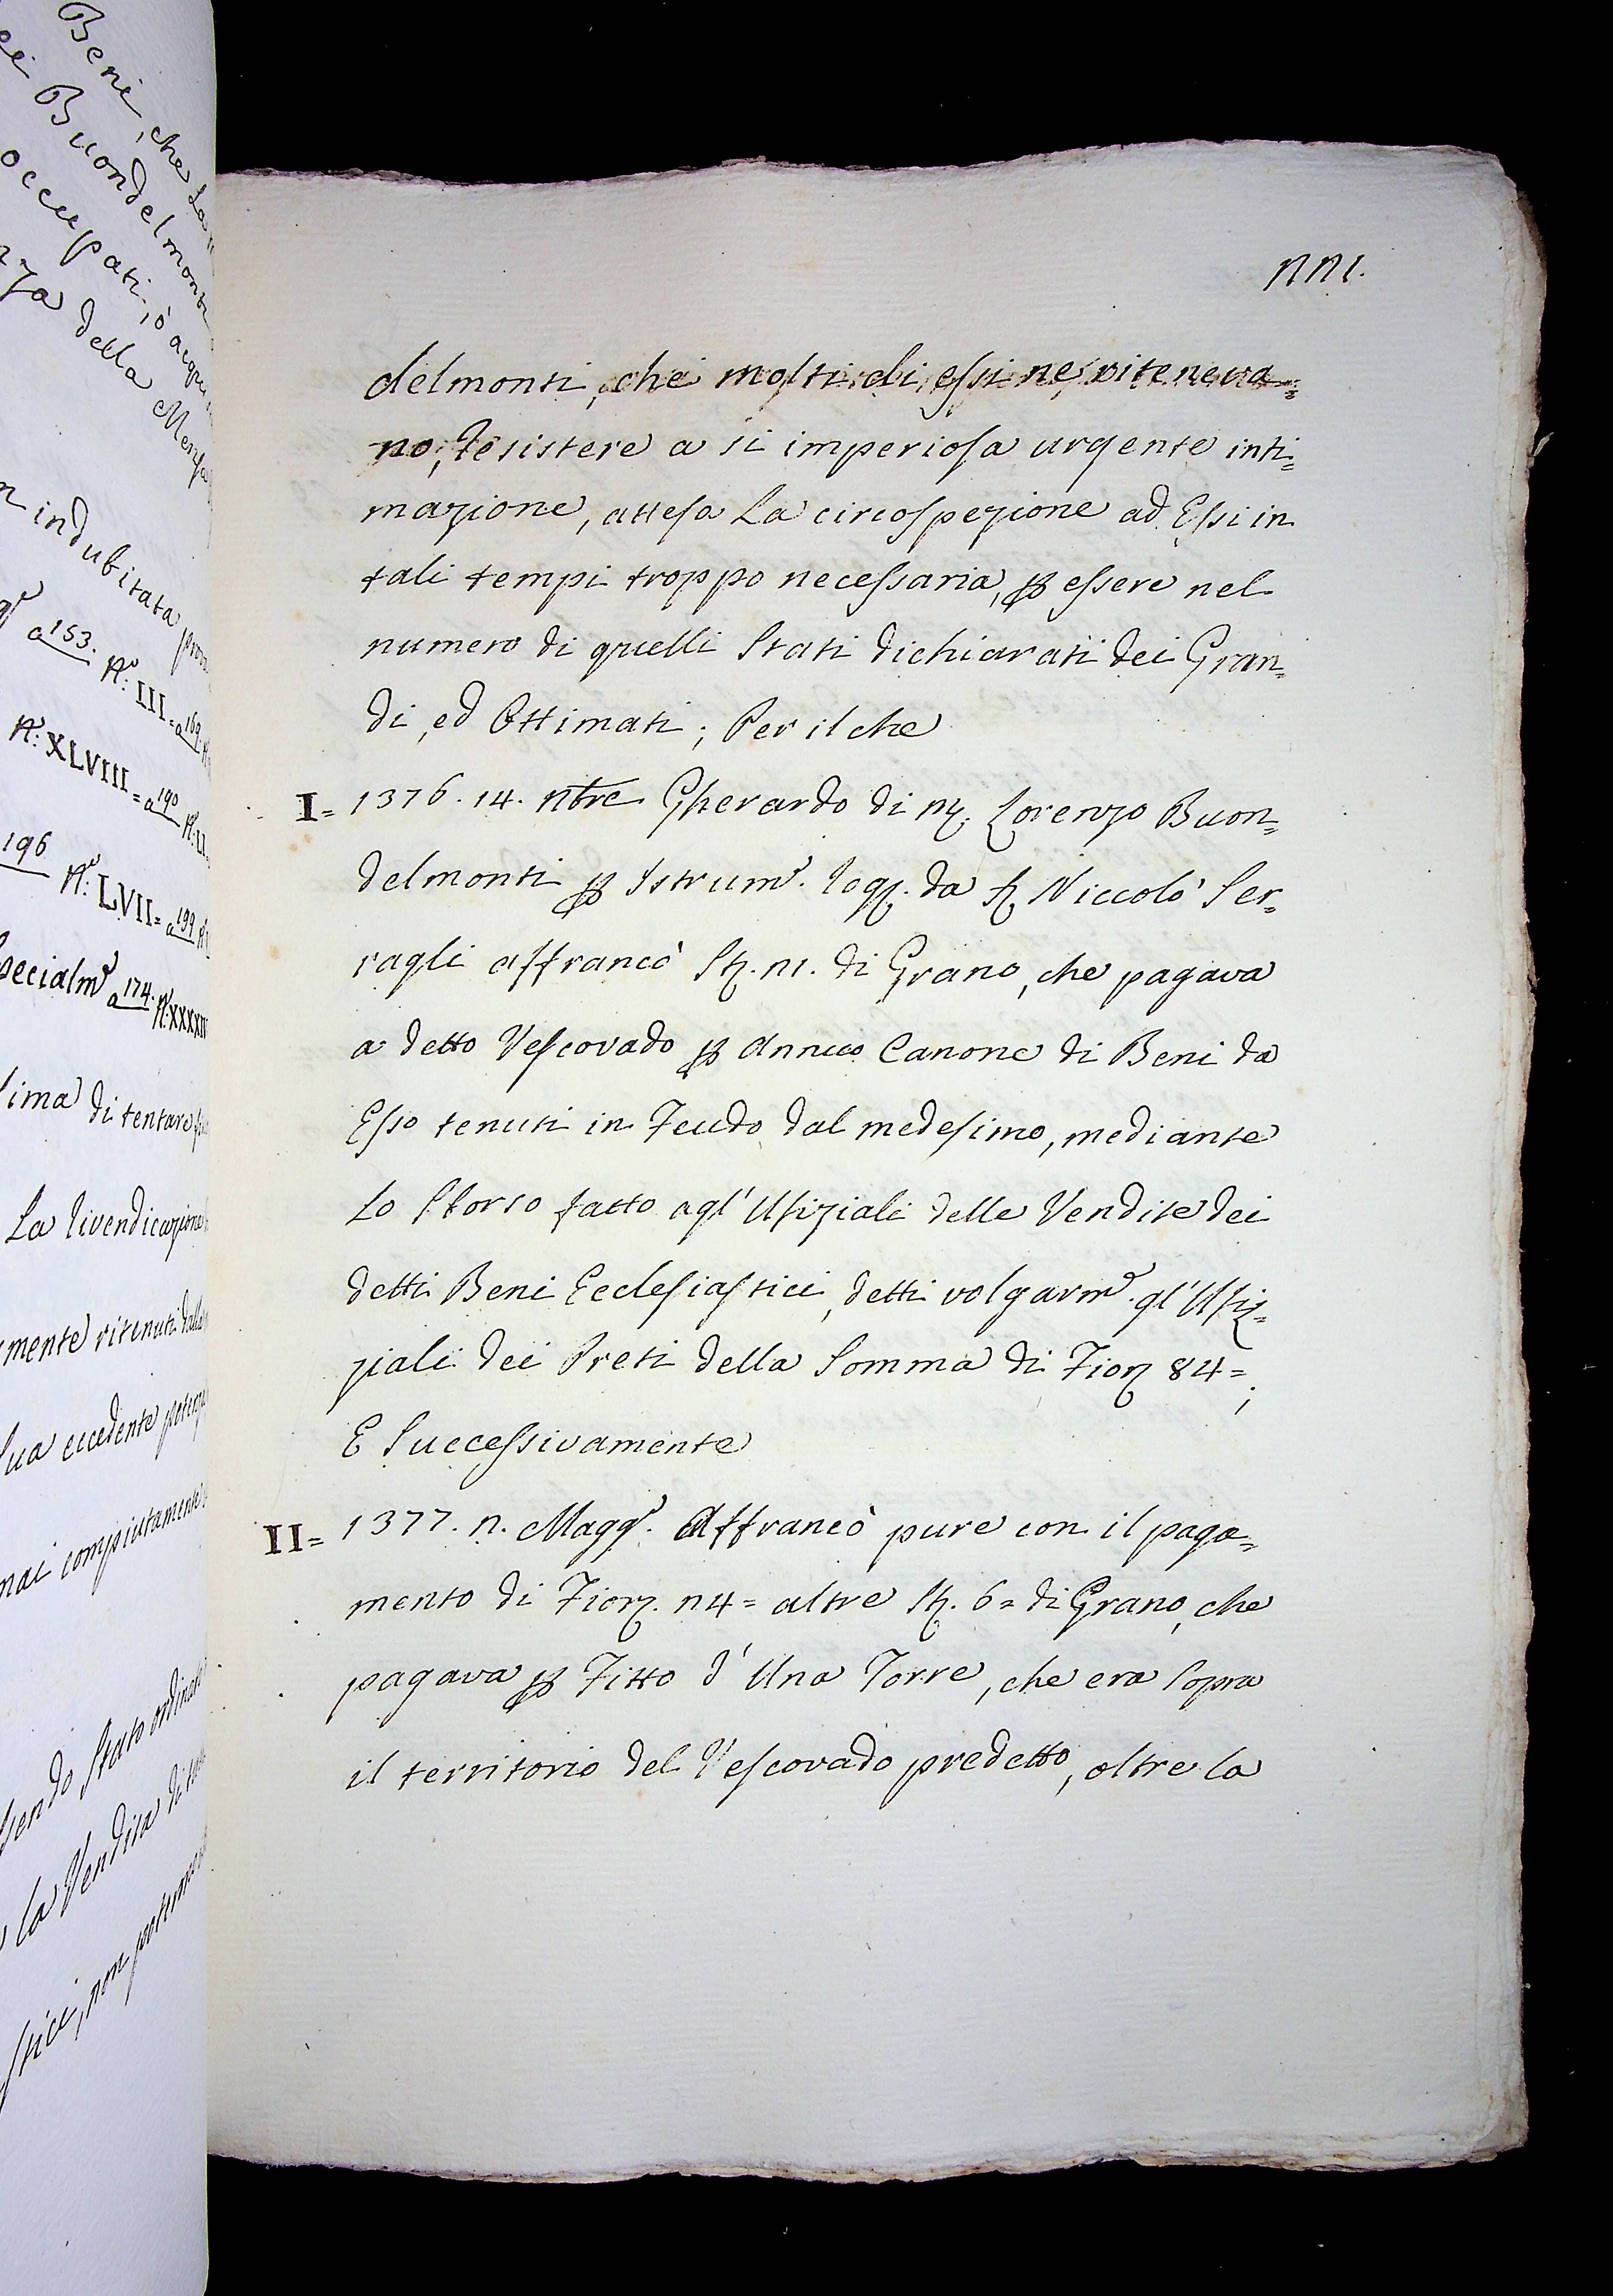 Beni, che La
ei Buondelmonti
occupati, ò acqu
nza della Mensa
n indubitata prova
a 153. N.º III = a 169.
N.º XLVIII = a 190 N.º LI
196 N.º LVII = a 199
pecialmᵉ a 174. N.º XXXXIV
sima di tentare
La Rivendicazione
mente ritenuti dalla
Sua eccedente potenza
mai compiutamente
ssendo Stato ordinato
la Vendita di tut
stici, non potero
221.
delmonti, che molti di essi ne riteneva=
no, Resistere a si imperiosa urgente inti=
mazione, attesa La circospezione ad Essi in
tali tempi troppo necessaria, ꝑ essere nel
numero di quelli Stati dichiarati dei Gran=
di, ed Ottimati; Per il che
I= 1376. 14. Nbre Gherardo di M. Lorenzo Buon=
delmonti ꝑ Istrumᵒ. Rog. da S. Niccolò Ser=
ragli affrancò St. 21. di Grano, che pagava
a detto Vescovado ꝑ Annuo Canone di Beni da
Esso tenuti in Feudo dal medesimo, mediante
Lo Sborso fatto agl' Ufiziali delle Vendite dei
detti Beni Ecclesiastici, detti volgarmᵉ. gl' Ufiz=
ziali dei Preti della Somma di Fior. 84=;
E Successivamente
II= 1377. 2. Maggᵒ. Affrancò pure con il paga=
mento di Fior. 24= altre St. 6= di Grano, che
pagava ꝑ Fitto d' Una Torre, che era Sopra
il territorio del Vescovado predetto, oltre la